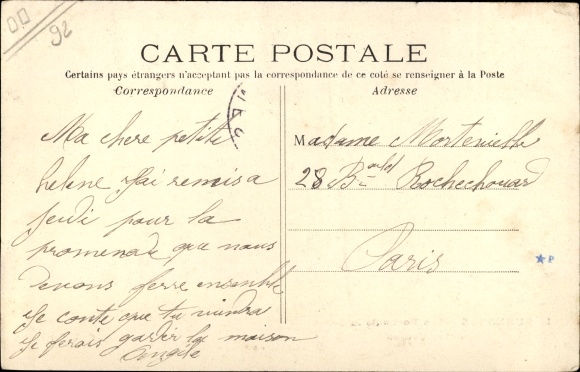 DD
92
CARTE POSTALE
Certains pays étrangers n'acceptant pas la correspondance de ce coté se renseigner à la Poste
Correspondance
Adresse
Ma chere petite
helene j'ai remis a
jeudi pour la
promenade que nous
devons ferre ensemble
je conte que tu viendra
je ferais garder la maison
Angèle
Madame
28 Bould Rochechouard
Paris
P